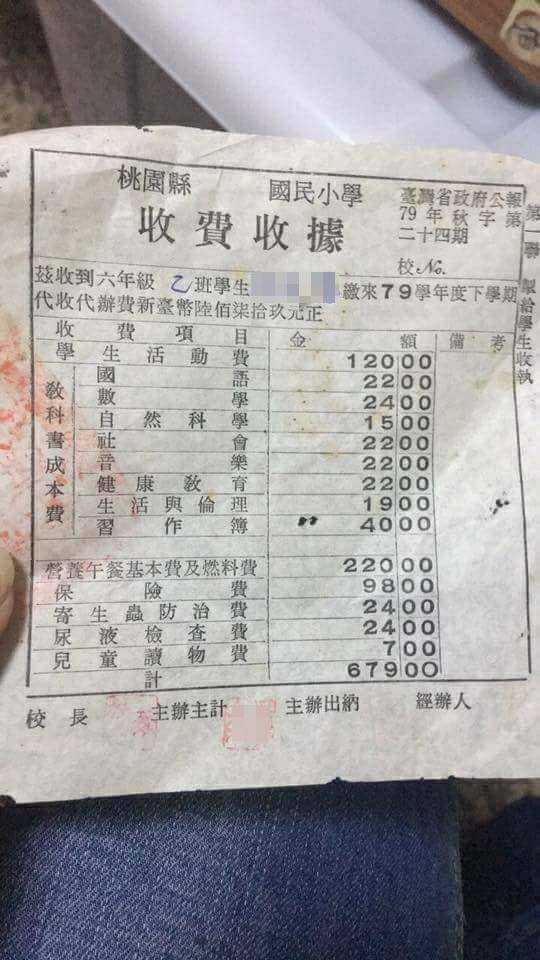 桃園縣 國民小學
收費收據
臺灣省政府公報
79年秋字第
二十四期
校No.
第一聯 報給學生收執
茲收到六年級 乙班學生 繳來79學年度下學期
代收代辦費新臺幣陸佰柒拾玖元正
收費項目 金額 備考
學生活動費 12000
教科書成本費
國語 2200
數學 2400
自然科學 1500
社會 2200
音樂 2200
健康教育 2200
生活與倫理 1900
習作簿 〃 4000
營養午餐基本費及燃料費 22000
保險費 9800
寄生蟲防治費 2400
尿液檢查費 2400
兒童讀物費 700
計 67900
校長 主辦主計 主辦出納 經辦人